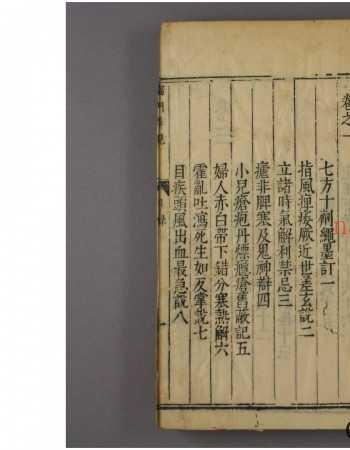 卷之一
七方十劑繩墨訂一
指風痹痿厥近世差玄說二
立諸時氣解利禁忌三
瘧非脾寒及鬼神辯四
小兒瘡疱丹熛癮疹舊蔽記五
婦人赤白帶下錯分寒熱解六
霍亂吐瀉死生如反掌說七
目疾頭風出血最急說八